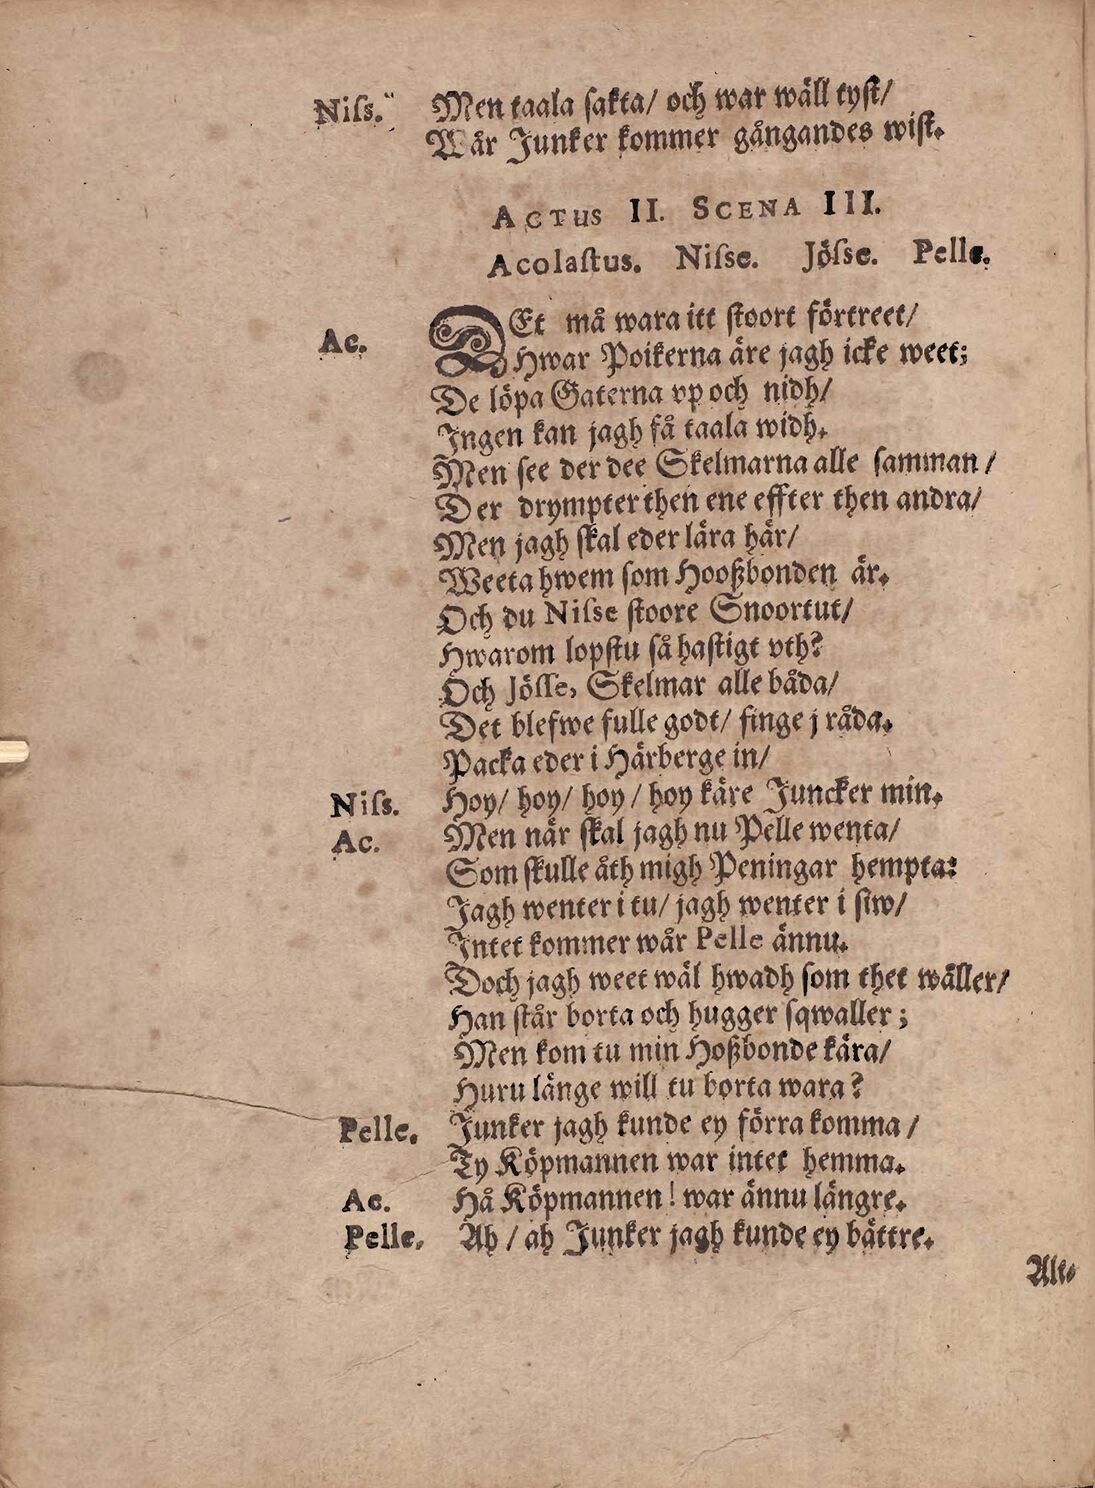 Niſs. Men taala sakta/ och war wäll tyst/
Wår Junker kommer gångandes wist.
ACTUS II. SCENA III.
Acolaſtus. Niſse. Jöſse. Pelle.
Ac. DEt må wara itt stoort förtreet/
Hwar Poikerna äre jagh icke weet;
De löpa Gaterna vp och nidh/
Ingen kan jagh få taala widh.
Men see der dee Skelmarna alle samman/
Der drympter then ene effter then andra/
Men jagh skal eder lära här/
Weeta hwem som Hooßbonden är.
Och du Niſse stoore Snoortut/
Hwarom lopstu så hastigt vth?
Och Jöſſe, Skelmar alle båda/
Det blefwe fulle godt/ finge j råda.
Packa eder i Härberge in/
Niſs. Hoy/ hoy/ hoy/ hoy käre Juncker min.
Ac. Men når skal jagh nu Pelle wenta/
Som skulle åth migh Peningar hempta:
Jagh wenter i tu/ jagh wenter i siw/
Intet kommer wår Pelle ännu.
Doch jagh weet wäl hwadh som thet wäller/
Han står borta och hugger sqwaller;
Men kom tu min Hoßbonde kära/
Huru länge will tu borta wara?
Pelle. Junker jagh kunde ey förra komma/
Ty Köpmannen war intet hemma.
Ac. Hå Köpmannen! war ännu längre.
Pelle. Ah/ ah Junker jagh kunde ey bättre.
Alt-